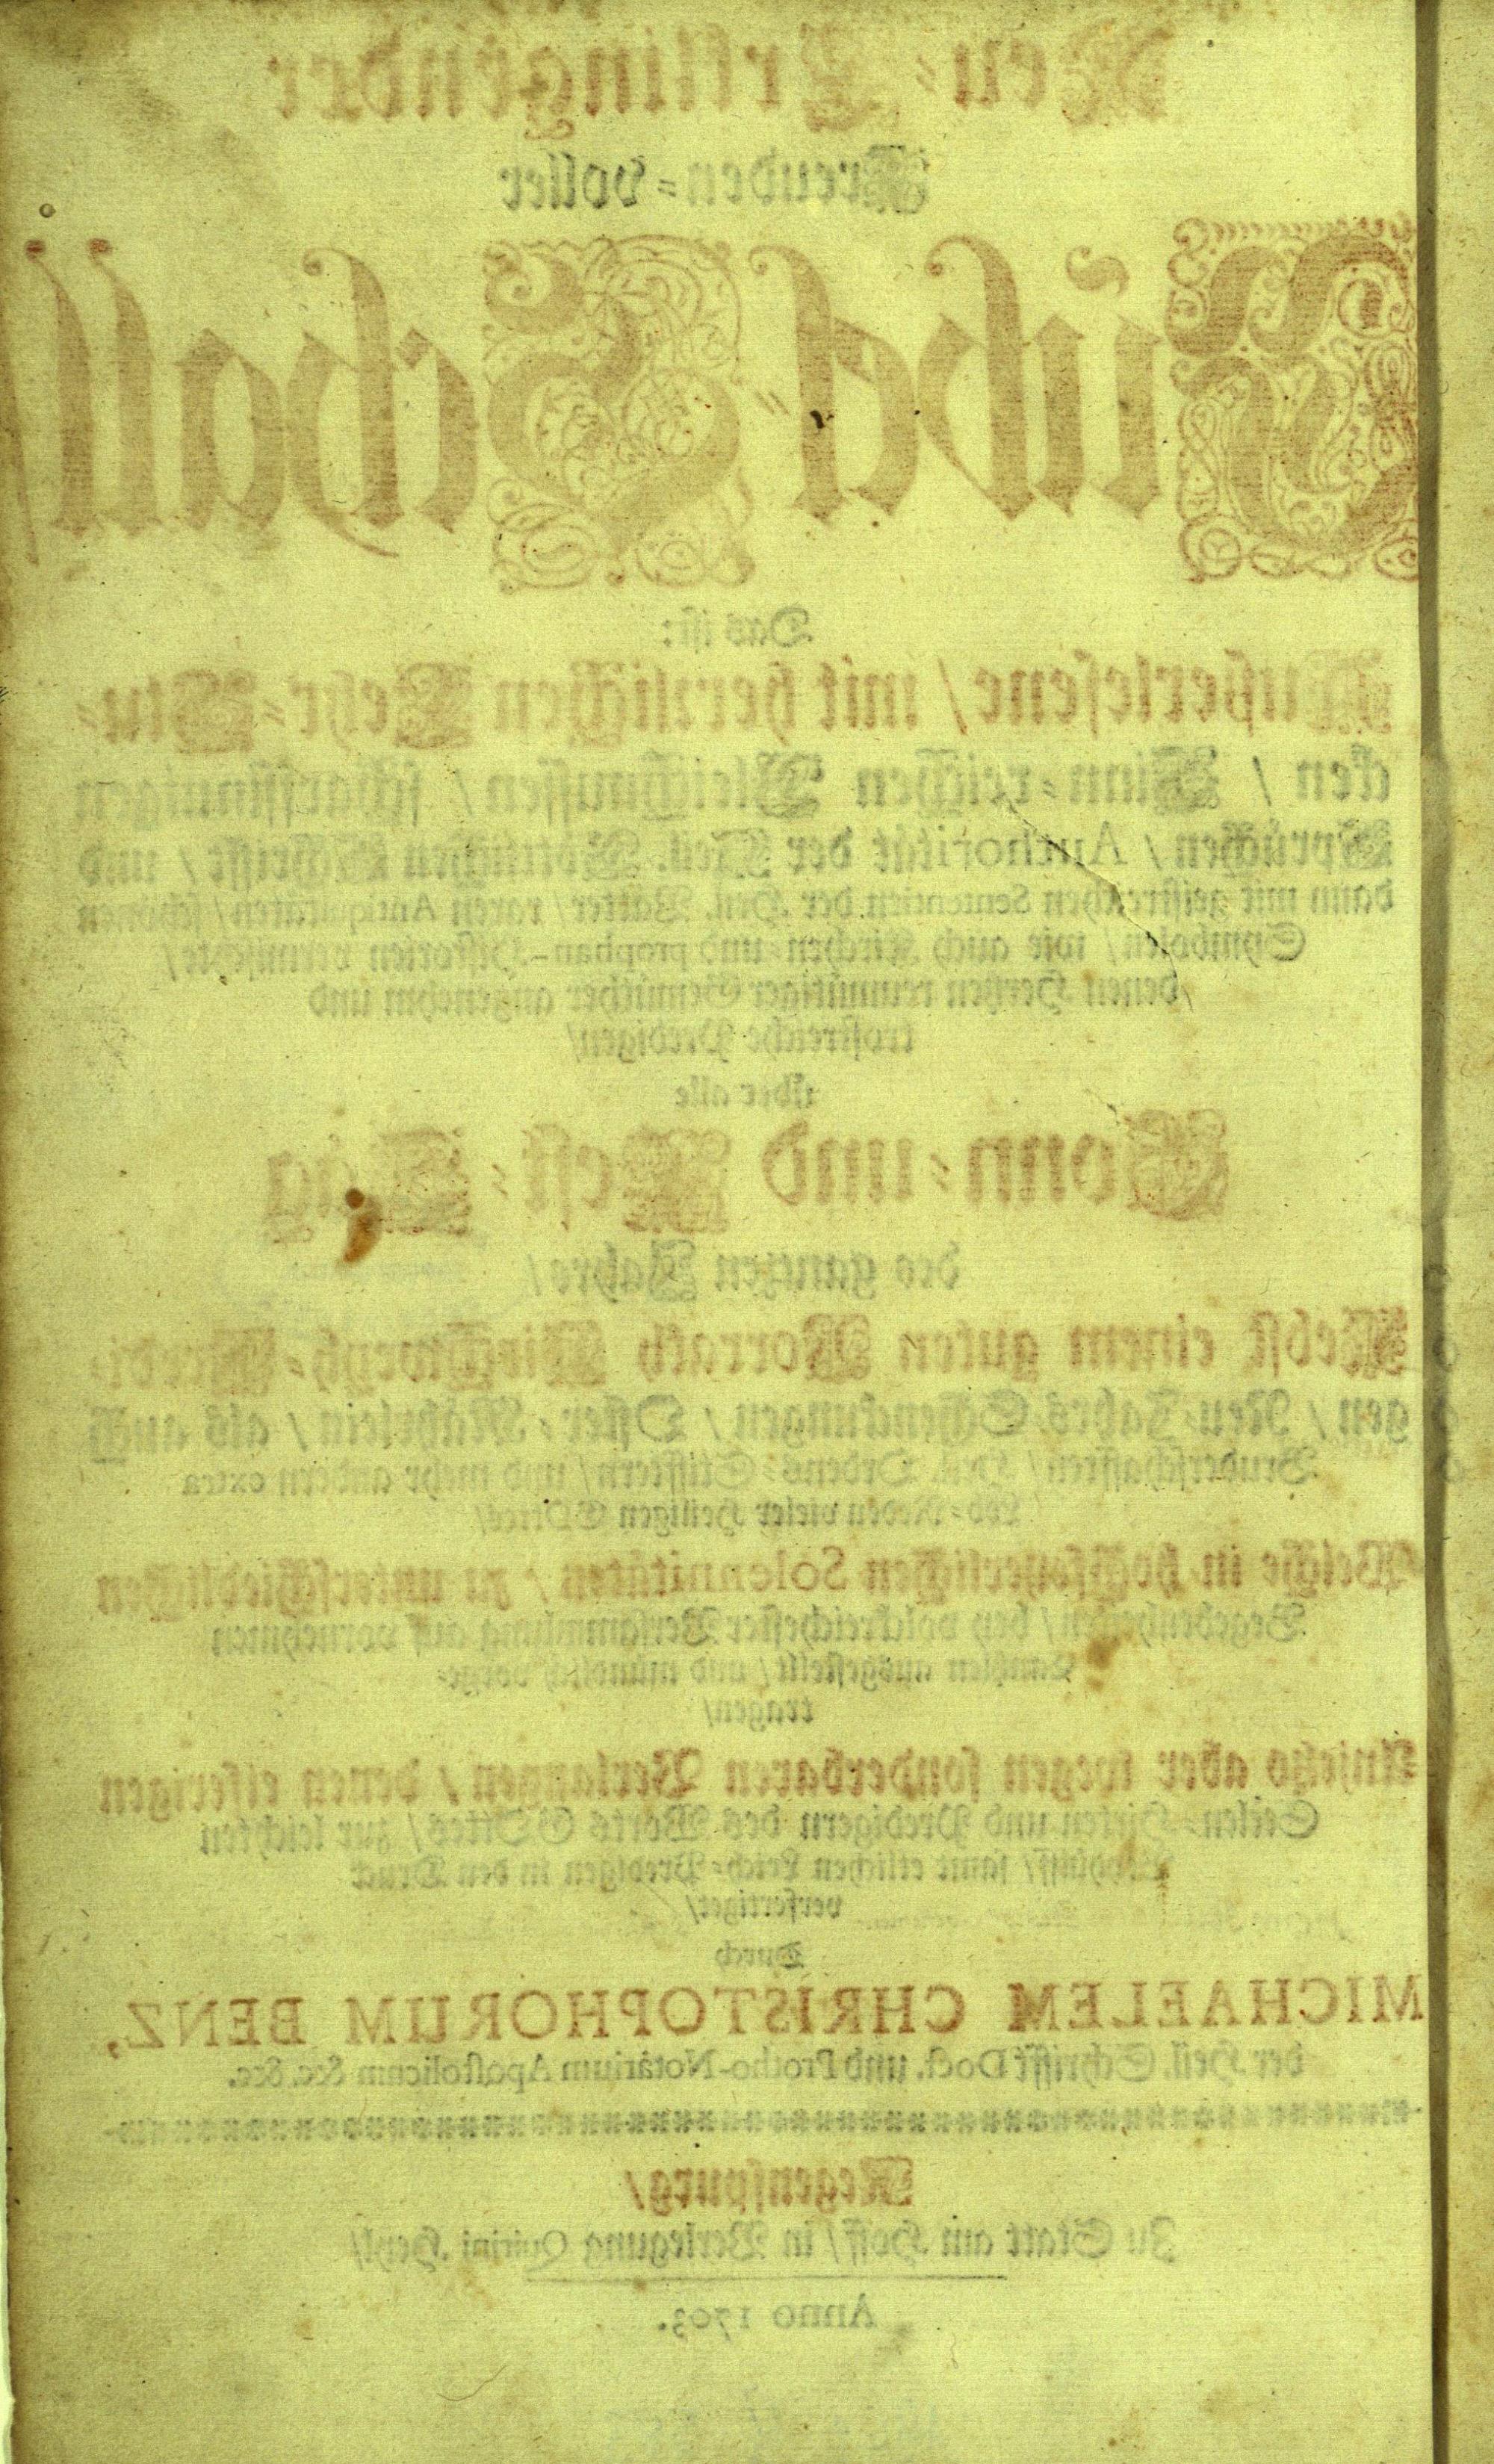 Neu-Erklingender
Freuden-voller
Kirch-Schall
Das ist:
Außerlesene / mit herrlichen Lehr-Stu-
cken / Sinn-reichen Gleichnussen / scharffsinnigen
Sprüchen / Authorität der Heil. Göttlichen Schrifft / und
dann mit geistreichen Sententien der Heil. Vätter / raren Antiquitäten / schönen
Symbolen / wie auch Kirchen- und prophan-Historien vermischte /
denen Hertzen reumütiger Gemüther angenehm und
trostreiche Predigen /
über alle
Sonn- und Fest-Täg
des gantzen Jahrs /
Nebst einem guten Vorrath Kirchweyh-Predi-
gen / Neu-Jahrs Schenckungen / Oster-Mährlein / als auch
Bruderschafften / Heil. Ordens-Stifftern / und mehr andern extra
Lob-Reden vieler Heiligen GOttes /
Welche in hochfeyerlichen Solennitäten / zu unterschiedlichen
Begebenheiten / bey volckreichester Versammlung auf vornehmen
Cantzlen außgestellt / und mündlich vorge-
tragen /
Anjetzo aber wegen sonderbaren Verlangen / denen eiferigen
Seelen-Hirten und Predigern des Worts GOttes / zur leichten
samt etlichen Leich-Predigen in den Druck
verfertiget /
Durch
MICHAELEM CHRISTOPHORUM BENZ,
der Heil. Schrifft Doct. und Protho-Notarium Apostolicum &c. &c.
Regenspurg /
Zu Statt am Hoff / in Verlegung Quirini Heyl /
Anno 1703.